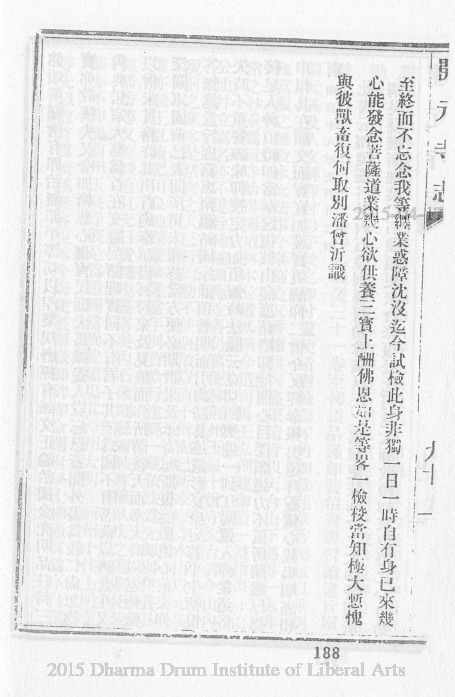 開元寺志
九十一
至終而不忘念我等纏業惑障沈沒迄今試檢此身非獨一日一時自有身已來幾
心能發念菩薩道業幾心欲供養三寶上酬佛恩如是等畧一檢校當知極大慙愧
與彼獸畜復何取別潘曾沂識
188
2015 Dharma Drum Institute of Liberal Arts